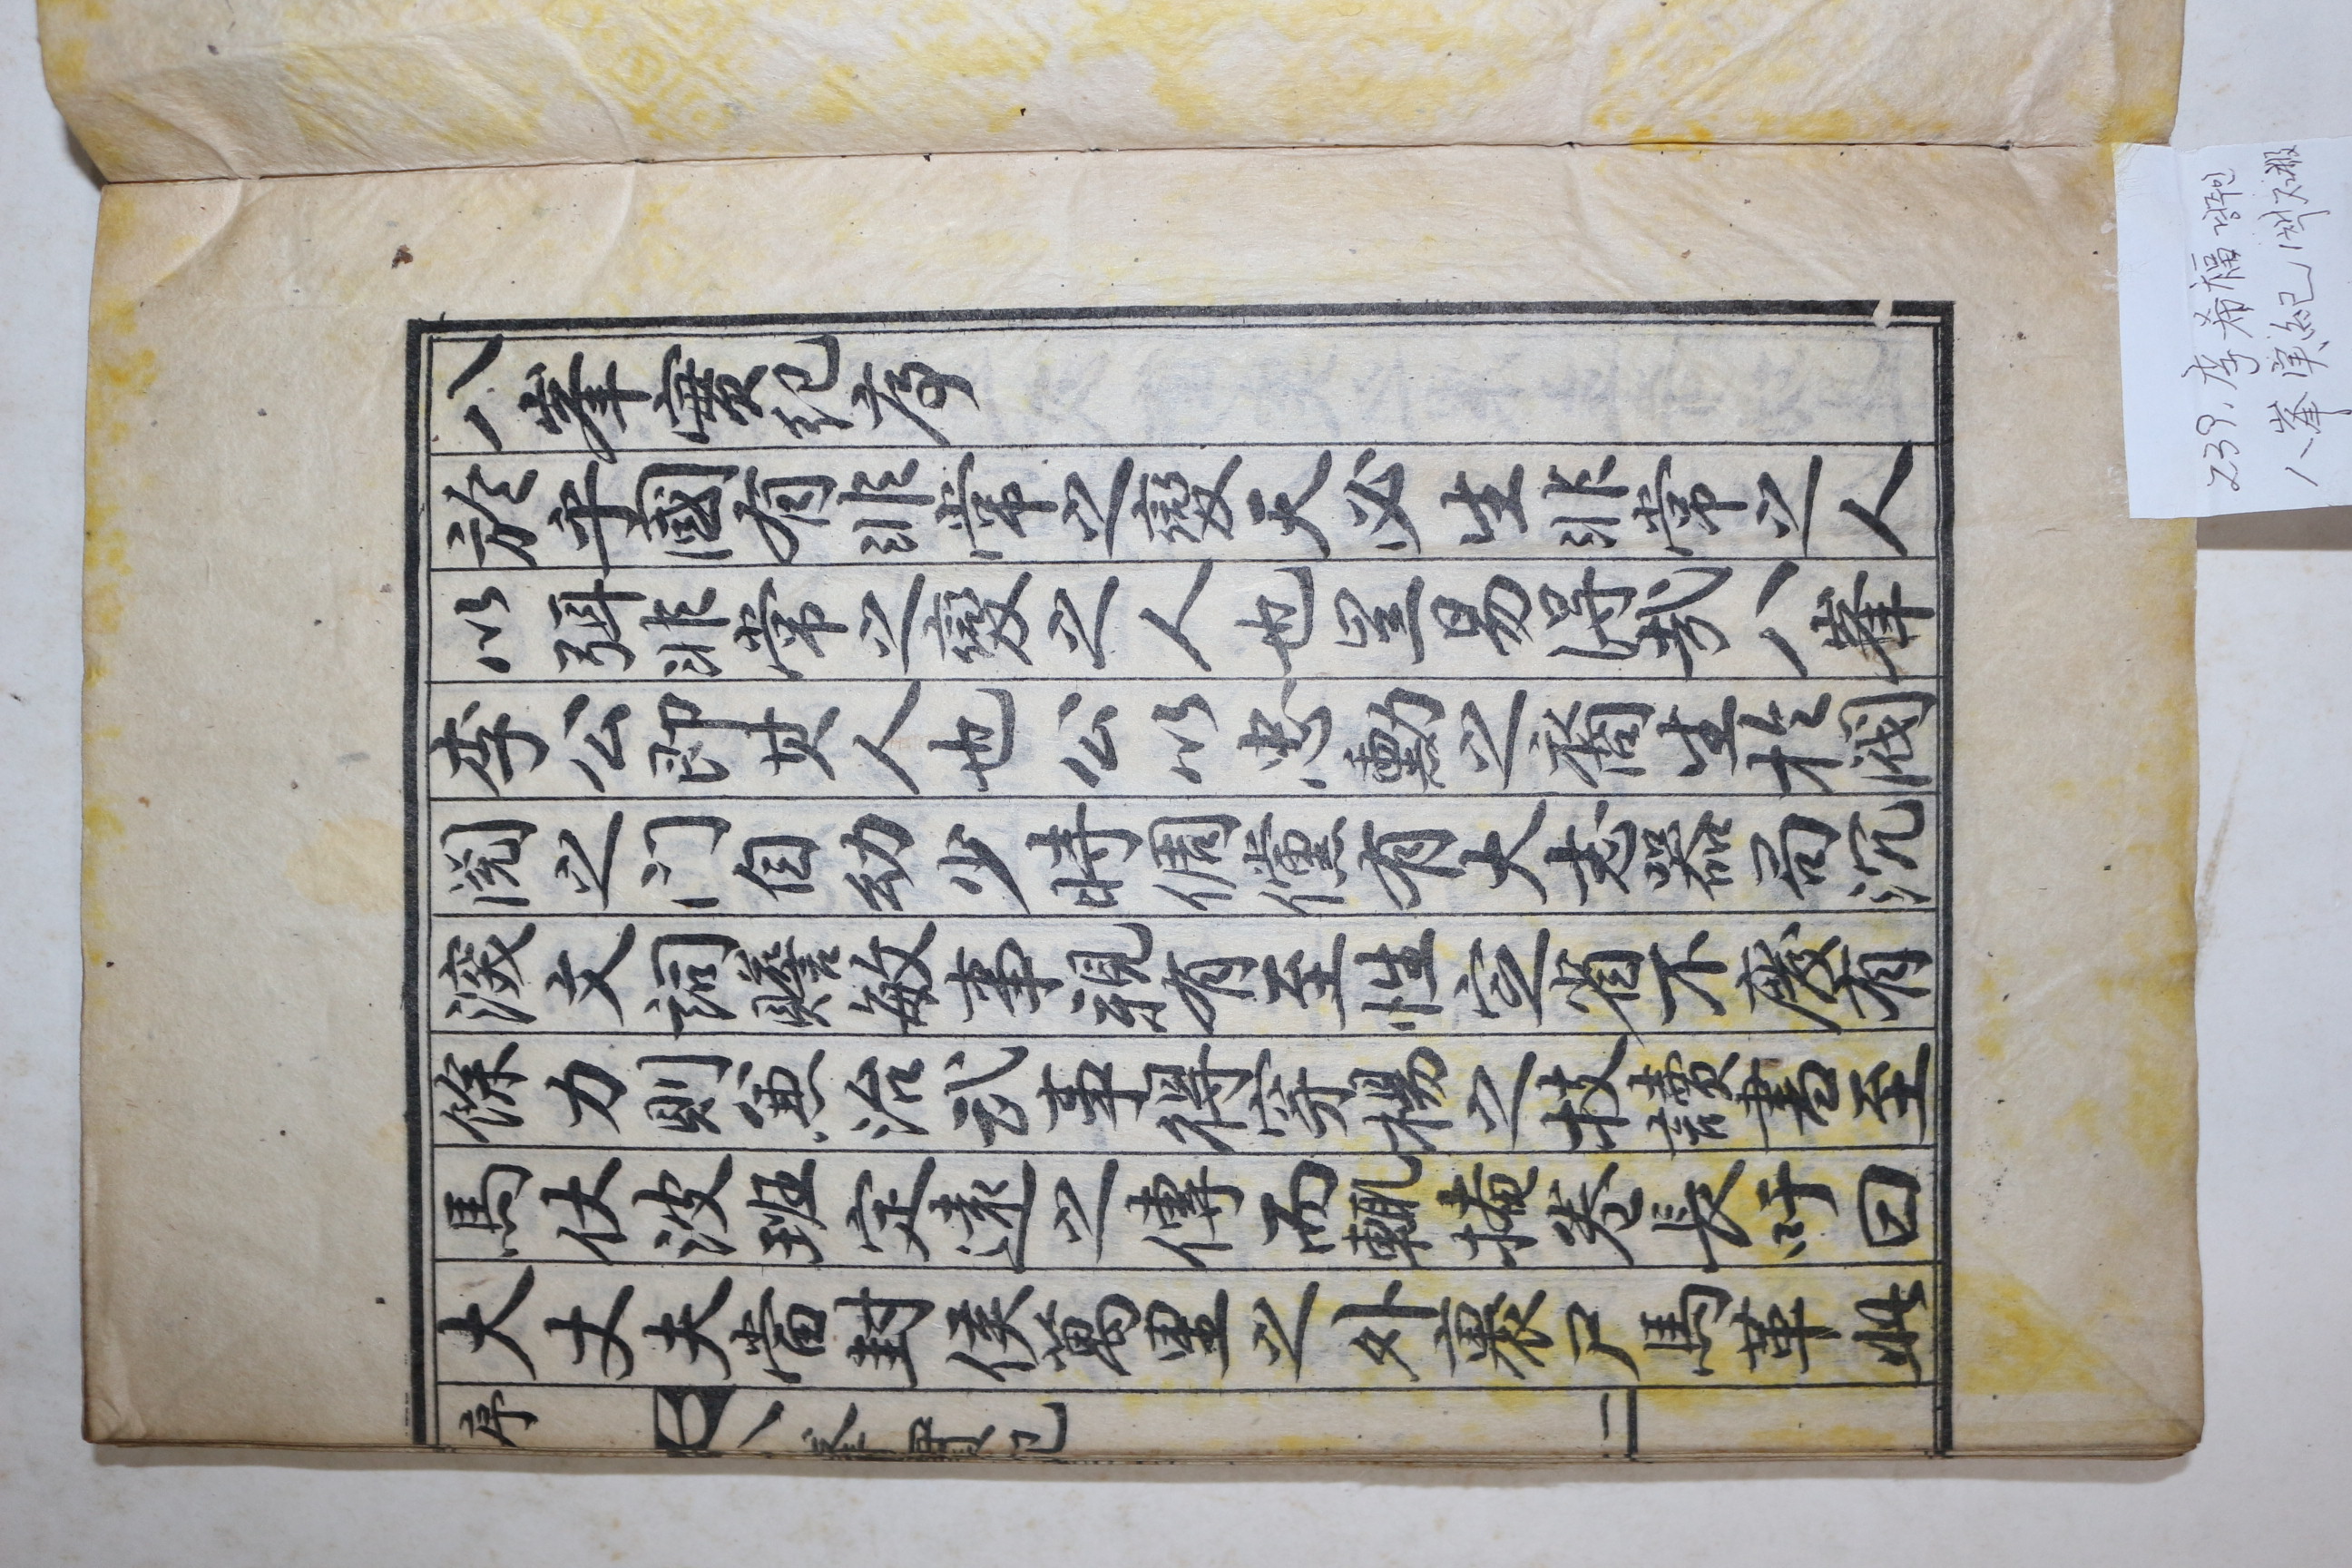 八峯實紀序
於乎國有非常之變天必生非常之人
以弭非常之變之人也豈易得哉八峯
李公即其人也公以忠勳之裔生於閥
閱之门自幼少時倜儻有大志器局沉
深文詞贍敏事親有至性定省不廢有
餘力則兼治武事得穿楊之技讀書至
馬伏波班定遠之傳而輒掩卷長吁曰
大丈夫當封侯萬里之外裹尸馬革此
序 八峯實紀 一
239. 李希福 광주인
八峯実紀 1책 石板